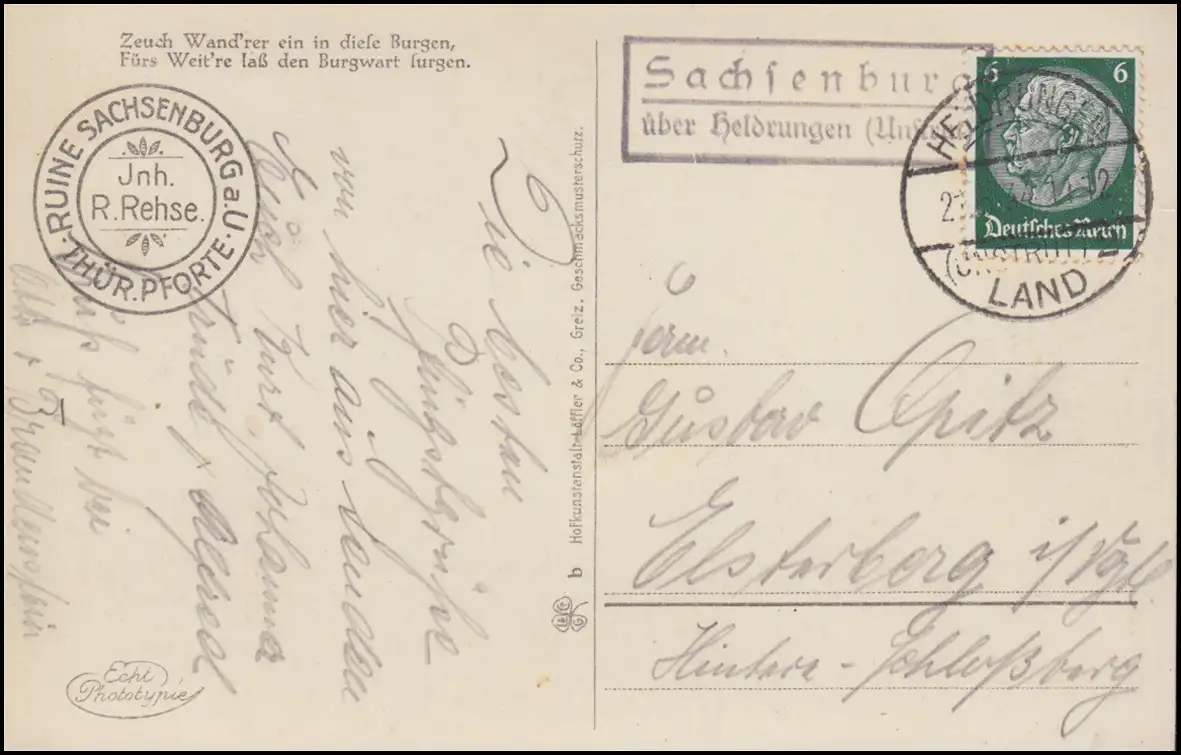 Zeuch Wand'rer ein in diese Burgen,
Fürs Weit're laß den Burgwart surgen.
RUINE SACHSENBURG a.U.
THÜR. PFORTE
Jnh.
R. Rehse.
Die besten
Pfingstgrüße
von hier aus senden
Euch Kurt, Johanna
Trudel,
fügt bei
Brandenstein
Echt
Phototypie
b Hofkunstanstalt Löffler & Co., Greiz. Geschmacksmusterschutz.
Sachsenburg
über Heldrungen (Unstrut)
HELDRUNGEN
(UNSTRUT)
LAND
6 6
Deutsches Reich
Gustav Opitz
Elsterberg i/Vgtl
Hintere-Schloßberg